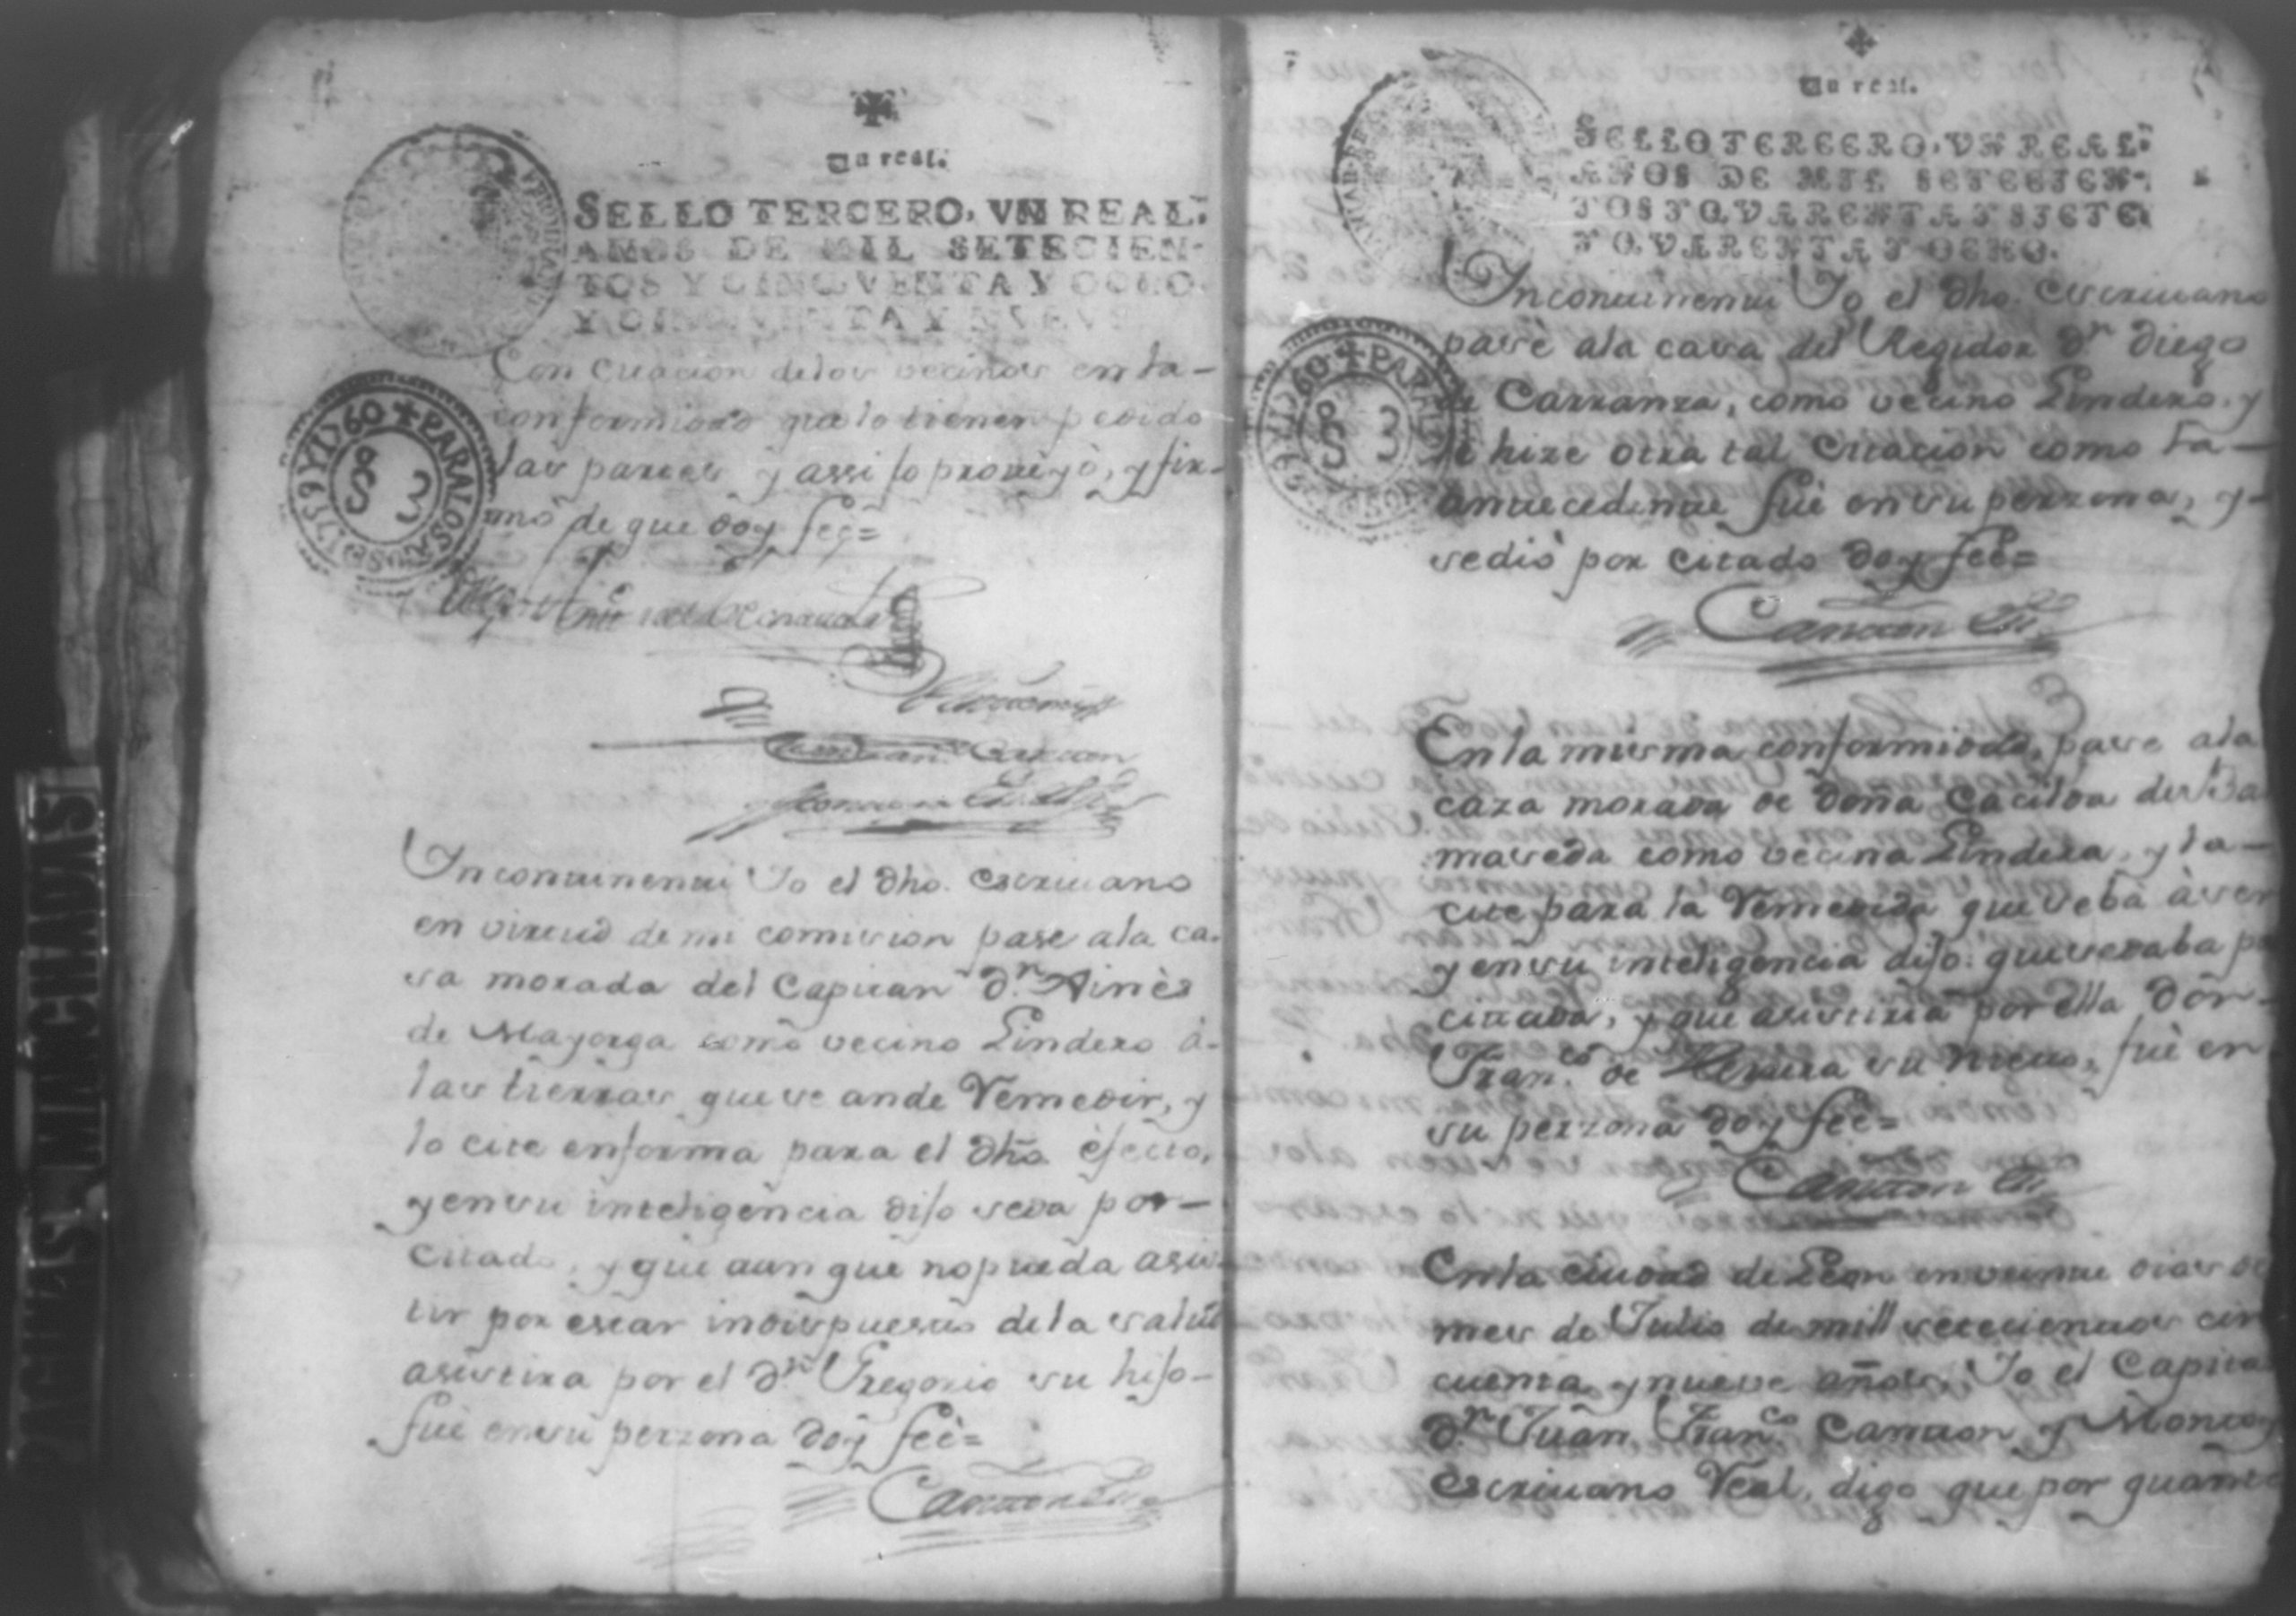 Un real.
SELLO TERCERO, VN REAL,
AÑOS DE MIL SETECIEN-
TOS Y CINQVENTA Y OCHO
Y CINQVENTA Y NVEVE
PARA LOS AÑOS D 1759 Y 1760
S 3
Con citacion delos vecinos en la-
conformidad que lo tienen pedido
las partes y assi lo proveyò, y fir-
mò de que doy feè=
Juan Fran.co Cantton
In continenti Yo el dho. escriuano
en virtud de mi comision pase ala ca-
sa morada del Capitan d.n Ainès
de Mayorga como vecino Lindero à-
las tierras que se an de Remedir, y
lo cite enforma para el dho efecto,
y en su inteligencia dijo seda por-
citado, y que aun que no pueda asis-
tir por estar indispuesto de la salud
asistira por el d.n Gregorio su hijo-
fuè en su perzona doy feè=
Cantton
PAGINAS MANCHADAS
Un real.
SELLO TERCERO, VN REAL,
AÑOS DE MIL SETECIEN-
TOS Y QVARENTA Y SIETE
Y QVARENTA Y OCHO.
PARA LOS
1760
S 3
In continenti Yo el dho. escriuano
pasè ala casa del Regidor d.n Diego
de Carranza, como vecino Lindero y
le hize otra tal Citacion como la-
antecedente fuè en su perzona, y-
sediò por citado doy feè=
Cantton
En la misma conformidad, pase ala
caza morada de doña Cacilda de Ba
maseda como vecina Lindera, y la-
cite para la Remedida que se bà àver
y en su inteligencia dijo que sedaba por
citada, y que asistiria por ella don-
Fran.co de su nieto, fuè en
su perzona doy feè=
Cantton
En la ciudad de Leon en veinte dias de
mes de Julio de mill setecientos cin
cuenta y nueve años, Yo el Capita
d.n Juan Fran.co Cantton y Montoy
escriuano Real, digo que por quante